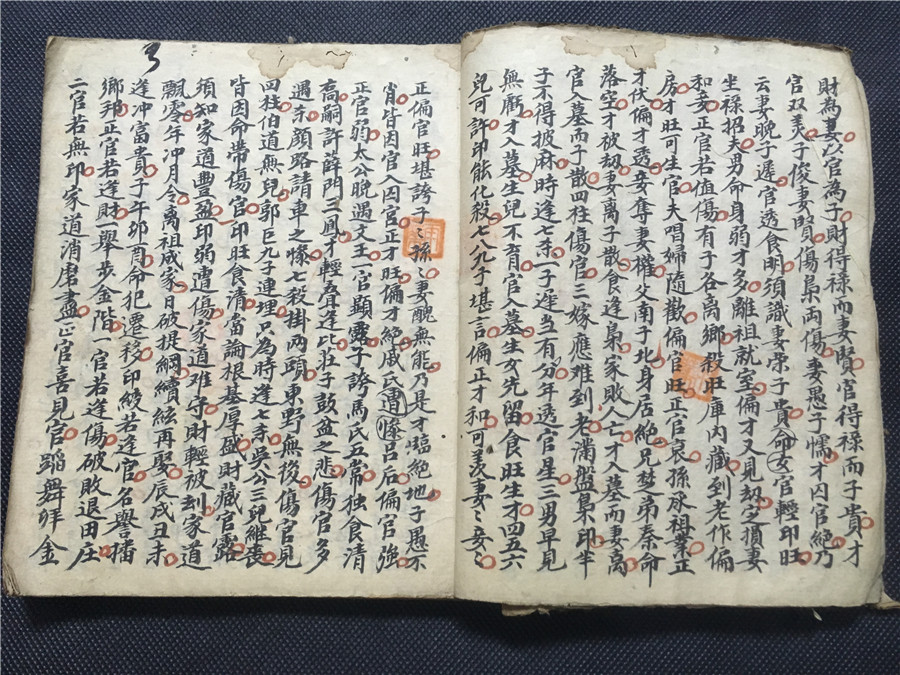 財為妻兮官為子財得禄而妻賢官得禄而子貴才
官双美子俊妻賢傷梟両傷妻愚子懦才囚官絶乃
云妻晚子遲官透食明須識妻荣子貴命女官輕印旺
坐禄招夫男命身弱才多離祖就室偏才又見刼定損妻
和妾正官若值傷有子各離鄉殺旺庫內藏到老作偏
房才旺可生官夫唱婦隨歡偏官旺正官衰孫承祖業正
才伏偏才透妾奪妻權父南子北身居絶兄楚弟秦命
落空才被刼妻離子散食逢梟家敗人亡才入墓而妻离
官入墓而子散四柱傷官三嫁應難到老滿盤梟印半
子不得披麻時逢七杀一子遲当有分年透官星二男早見
無虧才入墓生兒不育官入墓生女先留食旺生才四五六
兒可許印能化殺七八九子堪言偏正才和可羡妻〻妾〻
正偏官旺堪誇子〻孫〻妻醜無能乃是才臨絶地子愚不
肖皆因官入囚宮正才旺偏才絶戚氏遭慘吕后偏官強
正官弱太公晚遇文王一官顯露子誇馬氏五常独食清
高嗣許薛門三鳳才輕刼逢比莊子鼓盆之悲傷官多
遇杀顔路請車之慘七殺掛両頭東野無後傷官見
四柱伯道無兒郭巨九子連埋只為時逢七杀吳公三兒継丧
皆因命帶傷官印旺食清當論根基厚盛財藏官露
須知家道豐盈印弱遭傷家道难守財輕被刼家道
飄零年冲月令离祖成家日破提綱續絃再娶辰戌丑未
逢冲富貴子午卯酉命犯遷移印綬若逢官名譽播
鄉邦正官若逢財舉步金階一官若逢傷破敗退田庄
二官若無印家道消磨盡正官喜見官蹈舞拜金